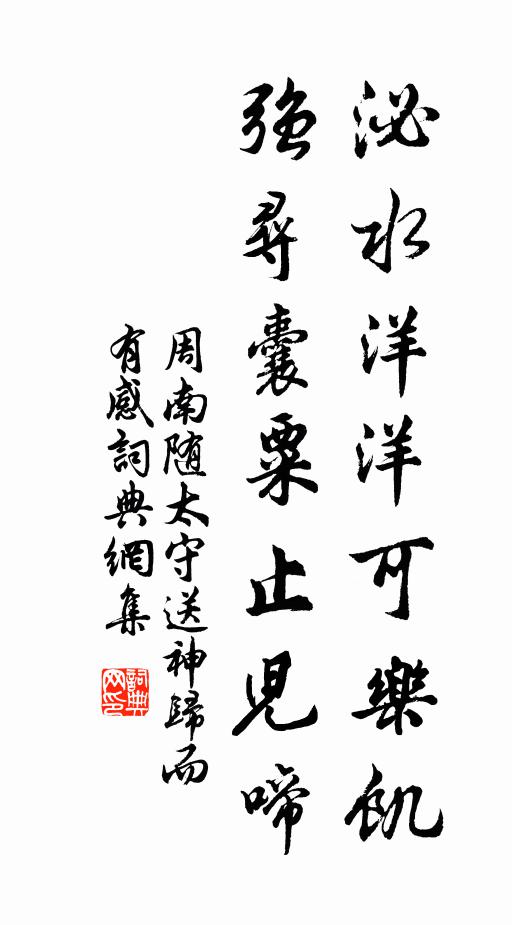 泌水洋洋可樂飢
強尋囊粟止兒啼
周南随太守送神歸而
有感詞典網集
詞典网印